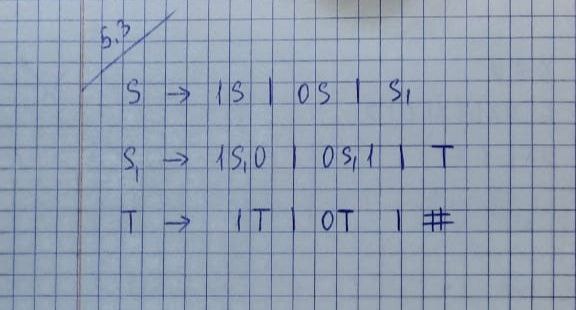 5.3
S → 1S | 0S | S₁
S₁ → 1S₁0 | 0S₁1 | T
T → 1T | 0T | #